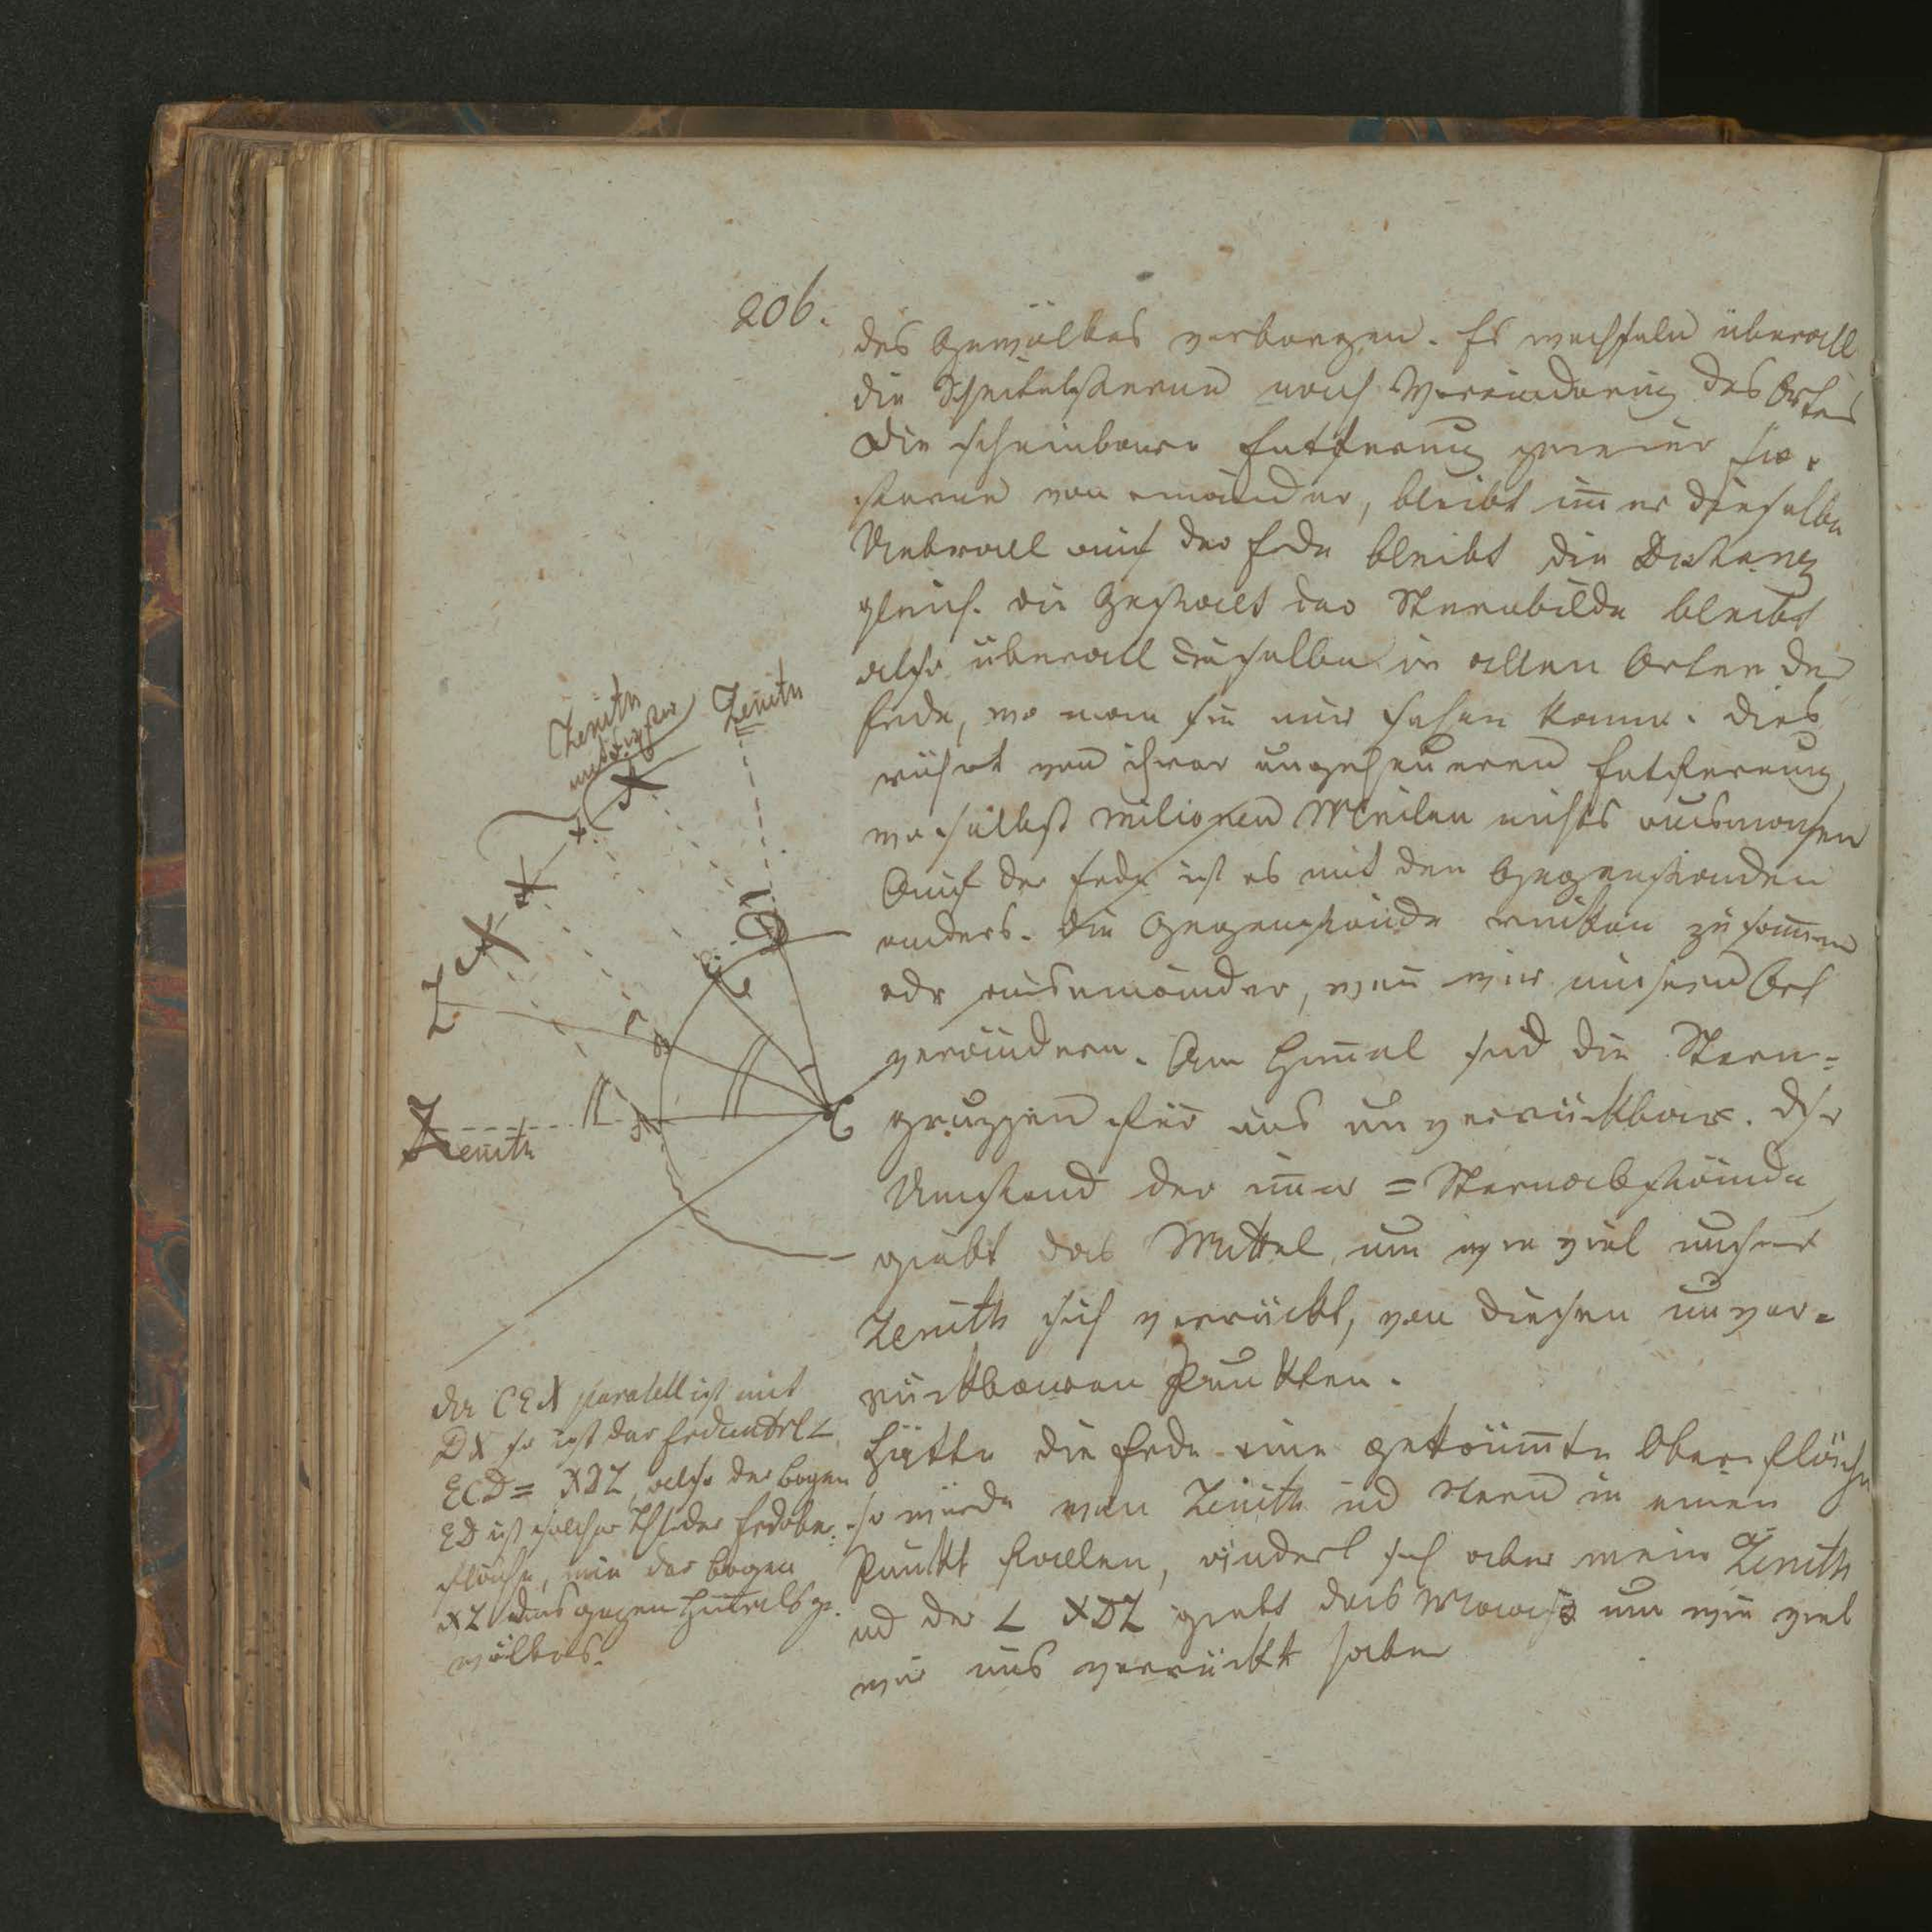 206.
des Gewölbes verborgen. Es wechseln überall
die Scheitelsterne nach Veränderung des Ortes
Die scheinbare Entfernung zweier Fix-
sterne von einander, bleibt im̄er dieselbe
Ueberall auf der Erde bleibt die Distanz
gleich. die Gestalt der Sternbilde bleibt
also überall dieselbe in allen Orten der
Erde, wo man sie nur sehen kann. dies
rührt von ihrer ungeheueren Entfernung
wo selbst milionen Meilen nichts ausmachen
Auf der Erde ist es mit den Gegenständen
anders. die Gegenstände rücken zusam̄en
odr auseinander, wen̄ wir unsern Ort
verändern. Am Him̄el sind die Stern=
gruppen für uns unverrückbar. Dsr
Umstand der im̄er = Sternabstände
giebt das Mittel, um wie viel unser
Zenith sich verrückt, von diesen unver=
rückbaren Punkten.
Hätte die Erde eine gekrüm̄te Oberfläche
so würde man Zenith ud Stern in einen
Punkt fallen, ändert sich aber mein Zenith
ud der ∠ XDZ giebt das Maaß um wie viel
wir uns verrückt haben
Zenith
Zenith
Z
Zenith
C
D
der CEX paralell ist mit
DX so ist der Erdwinkel ∠
ECD = XDZ, also der Bogen
ED ist solcher Thl der Erdober=
fläche, wie der Bogen
XZ des ganzen Him̄elsge=
wölbes.